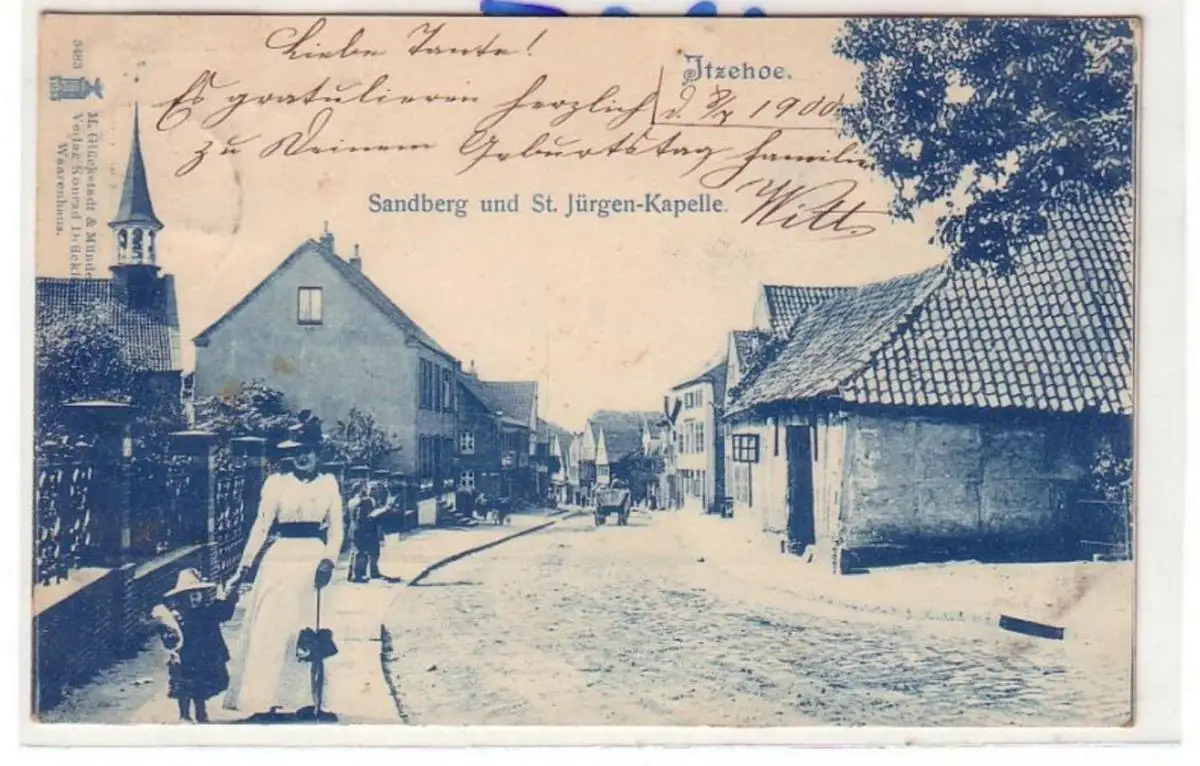 Liebe Tante!
Itzehoe.
Es gratulieren herzlich d. 9/X 1900
zu Deinem Geburtstag Familie
Witt.
Sandberg und St. Jürgen-Kapelle.
5463
M. Glückstadt & Münden
Verlag Konrad Drückh
Waarenhaus.